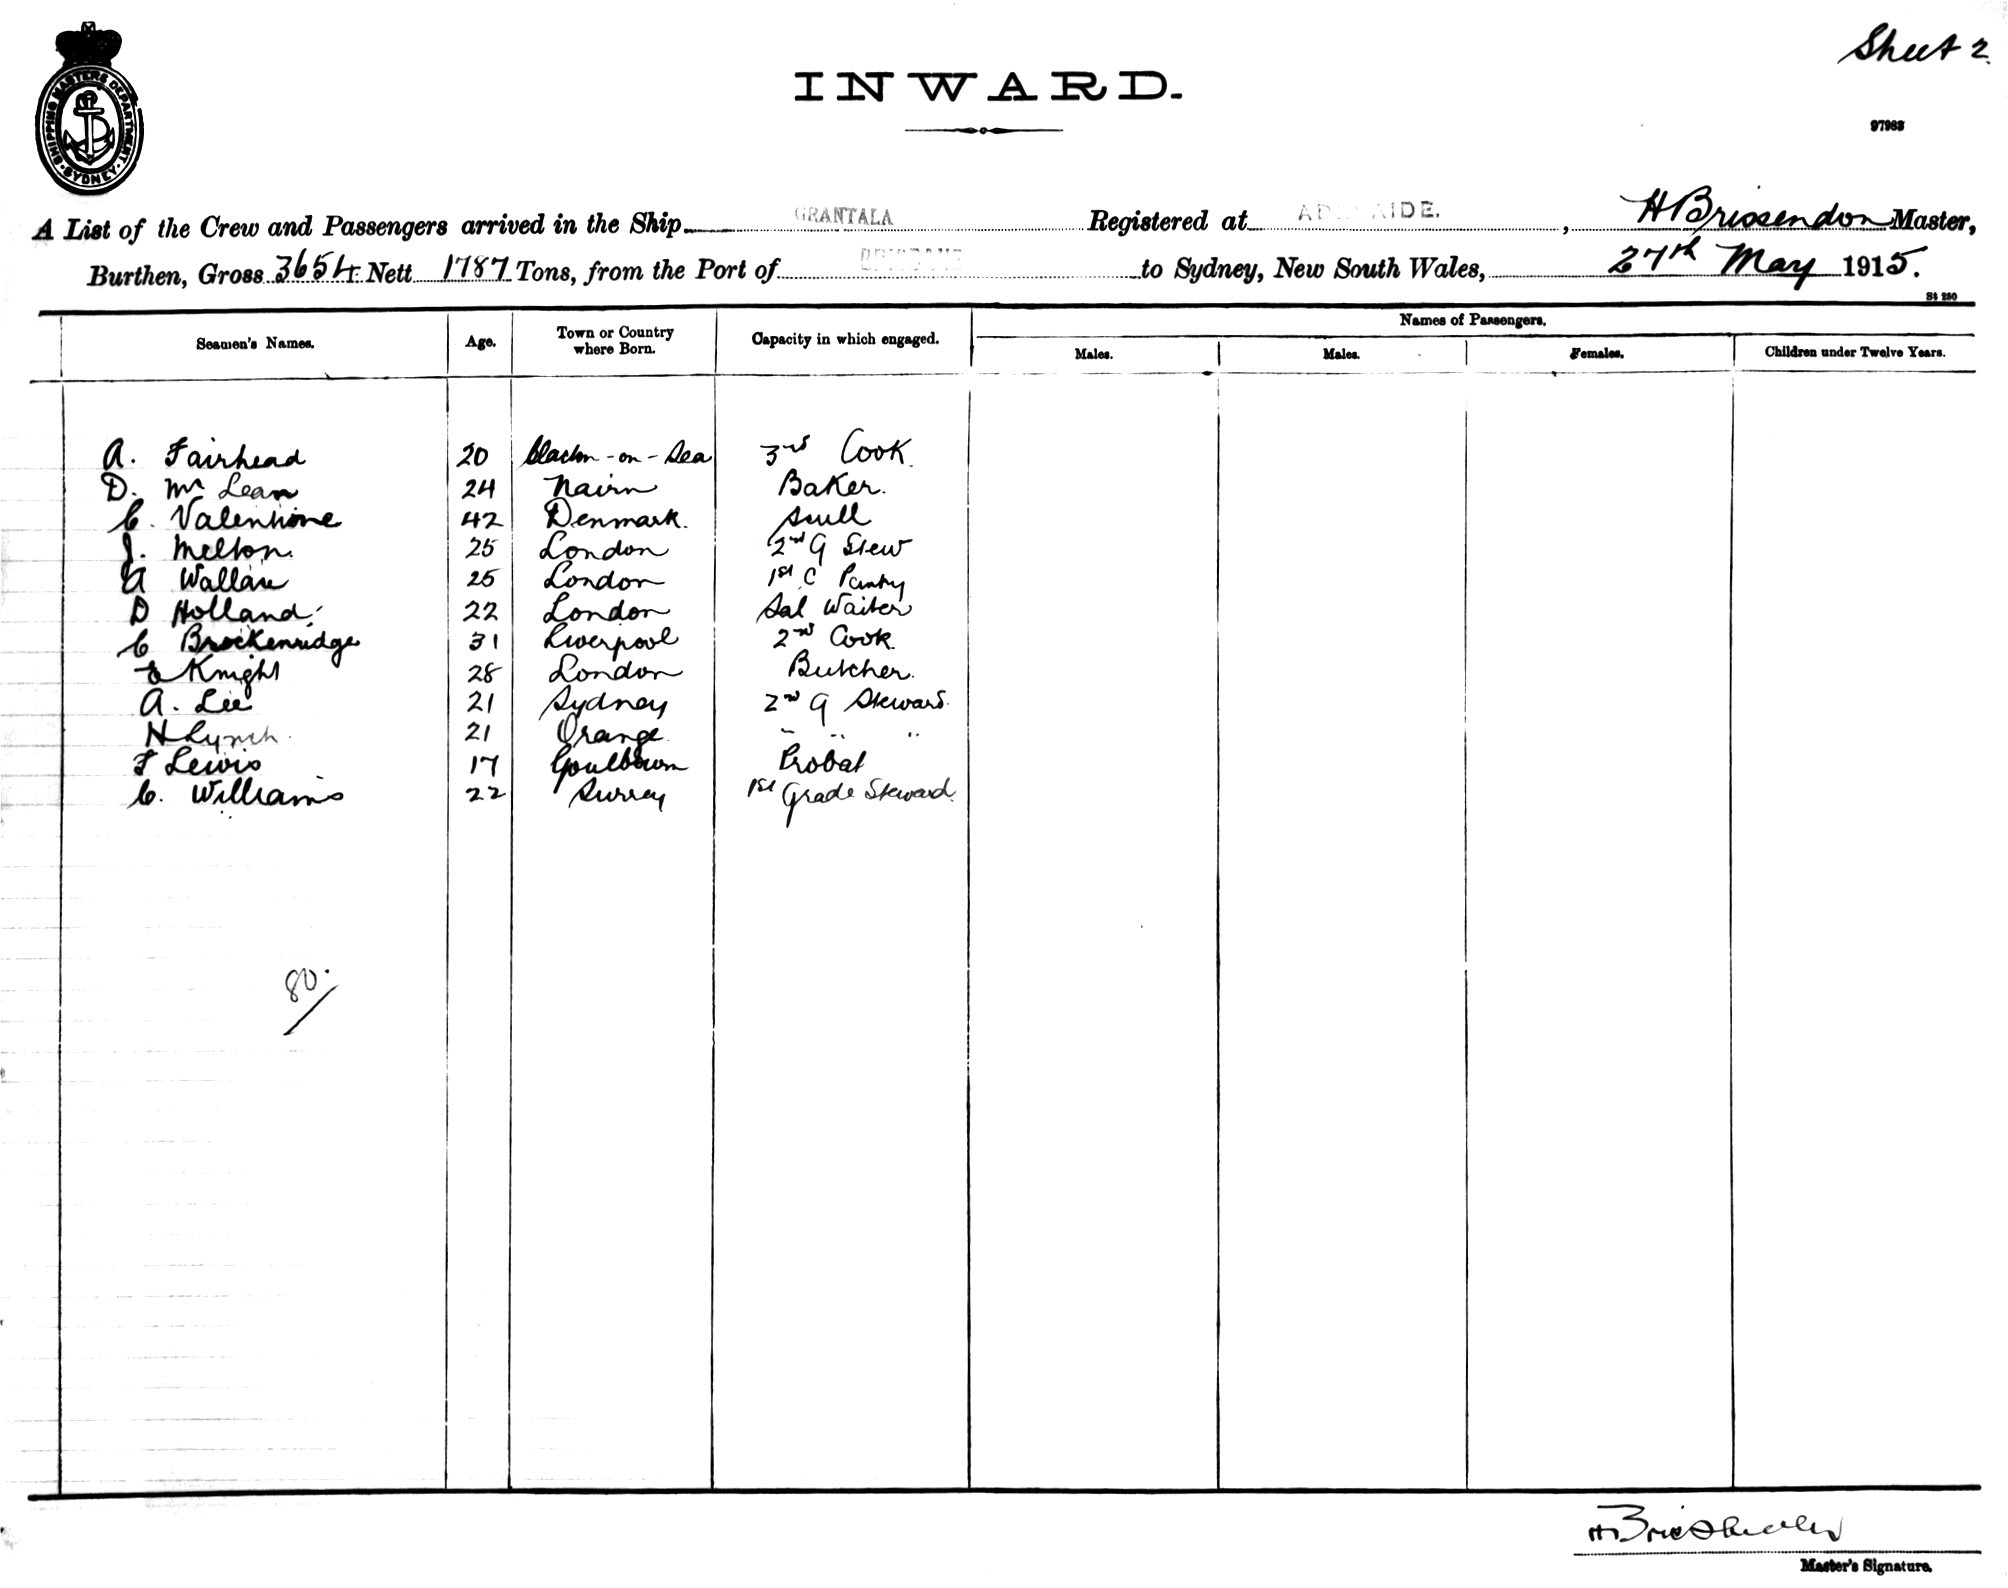 Sheet 2.
INWARD.
97963
SHIPPING MASTERS DEPARTMENT
SYDNEY
A List of the Crew and Passengers arrived in the Ship GRANTALA Registered at ADELAIDE. , H Brissendon Master,
Burthen, Gross 3654 Nett 1787 Tons, from the Port of BRISBANE to Sydney, New South Wales, 27th May 1915.
St 250
Seamen's Names. Age. Town or Country where Born. Capacity in which engaged. Names of Passengers.
Males. Males. Females. Children under Twelve Years.
A. Fairhead 20 Clacton-on-Sea 3rd Cook.
D. Mc Lean 24 Nairn Baker.
C. Valentine 42 Denmark. Scull
J. Melton. 25 London 2nd G Stew
A Wallace 25 London 1st C Pantry
D Holland 22 London Sal Waiter
C Brockenridge 31 Liverpool 2nd Cook.
Knight 28 London Butcher.
A. Lee 21 Sydney 2nd G Steward.
H Lynch 21 Orange " " "
F Lewis 17 Goulburn Probat
C. Williams 22 Surrey 1st Grade Steward.
80.
Master's Signature.